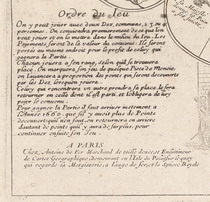 Ordre du Jeu
On y peut jouer avec deux Dez, commune, 2, 3 ou 4
personnes. On conviendra premierement de ce que l'on
peut jouer et on le mettra dans le milieu du Jeu. Les
Payements seront de la valeur du convenu: Ils seront
portés au mesme endroit pour le profit de celuy qui
gagnera la Partie.
Chacun jouera a son rang, selon qu'il se trouvera
place. On marquera son jeu de quelque Piece de Monoie,
on l'avancera a proportion des points qui seront decouverts
par les Dez, chaque joueur.
Celuy qui rencontrera un autre prendra sa place, le fera
retourner en celle dont il est parti, et l'obligera de luy
payer le convenu.
Pour gagner la Partie il faut arriver justement a
l'Année 1660, que s'il y avoit plus de Points
decouverts qu'il n'en faut, on retournera en arriere
d'autant de points qu'il y aura de surplus, pour
continuer ensuite son Jeu.
A PARIS.
Chez, Antoine de Fer Marchand de taille douce, et Enlumineur
de Cartes Geographiques, demeurant en l'Isle du Palais, sur le quay
qui regarde la Megisserie, a l'Image de la Sphere Royale